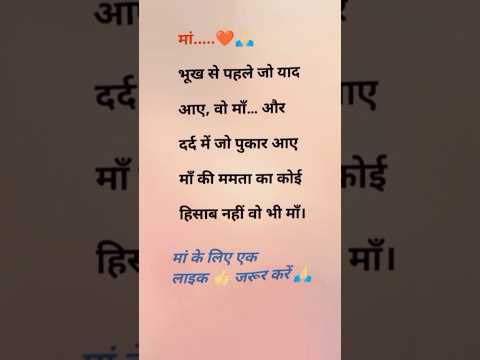 मां.....❤️🙏
भूख से पहले जो याद
आए, वो माँ... और
दर्द में जो पुकार आए
माँ की ममता का कोई
हिसाब नहीं वो भी माँ।
मां के लिए एक
लाइक 👍 जरूर करें🙏